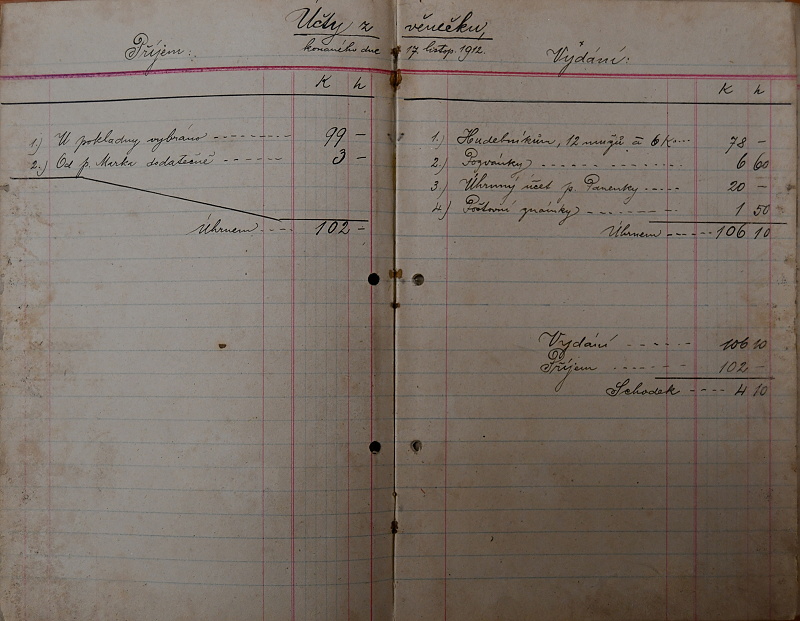 Účty z věnečku,
konaného dne 17. listop. 1912.
Příjem:
K h
1.) U pokladny vybráno 99 —
2.) Od p. Marka dodatečně 3 —
Úhrnem 102 —
Vydání:
K h
1.) Hudebníkům, 12 mužů à 6 K 78 —
2.) Pozvánky 6 60
3.) Úhrnný účet p. Panenky 20 —
4.) Poštovní známky 1 50
Úhrnem 106 10
Vydání 106 10
Příjem 102 —
Schodek 4 10